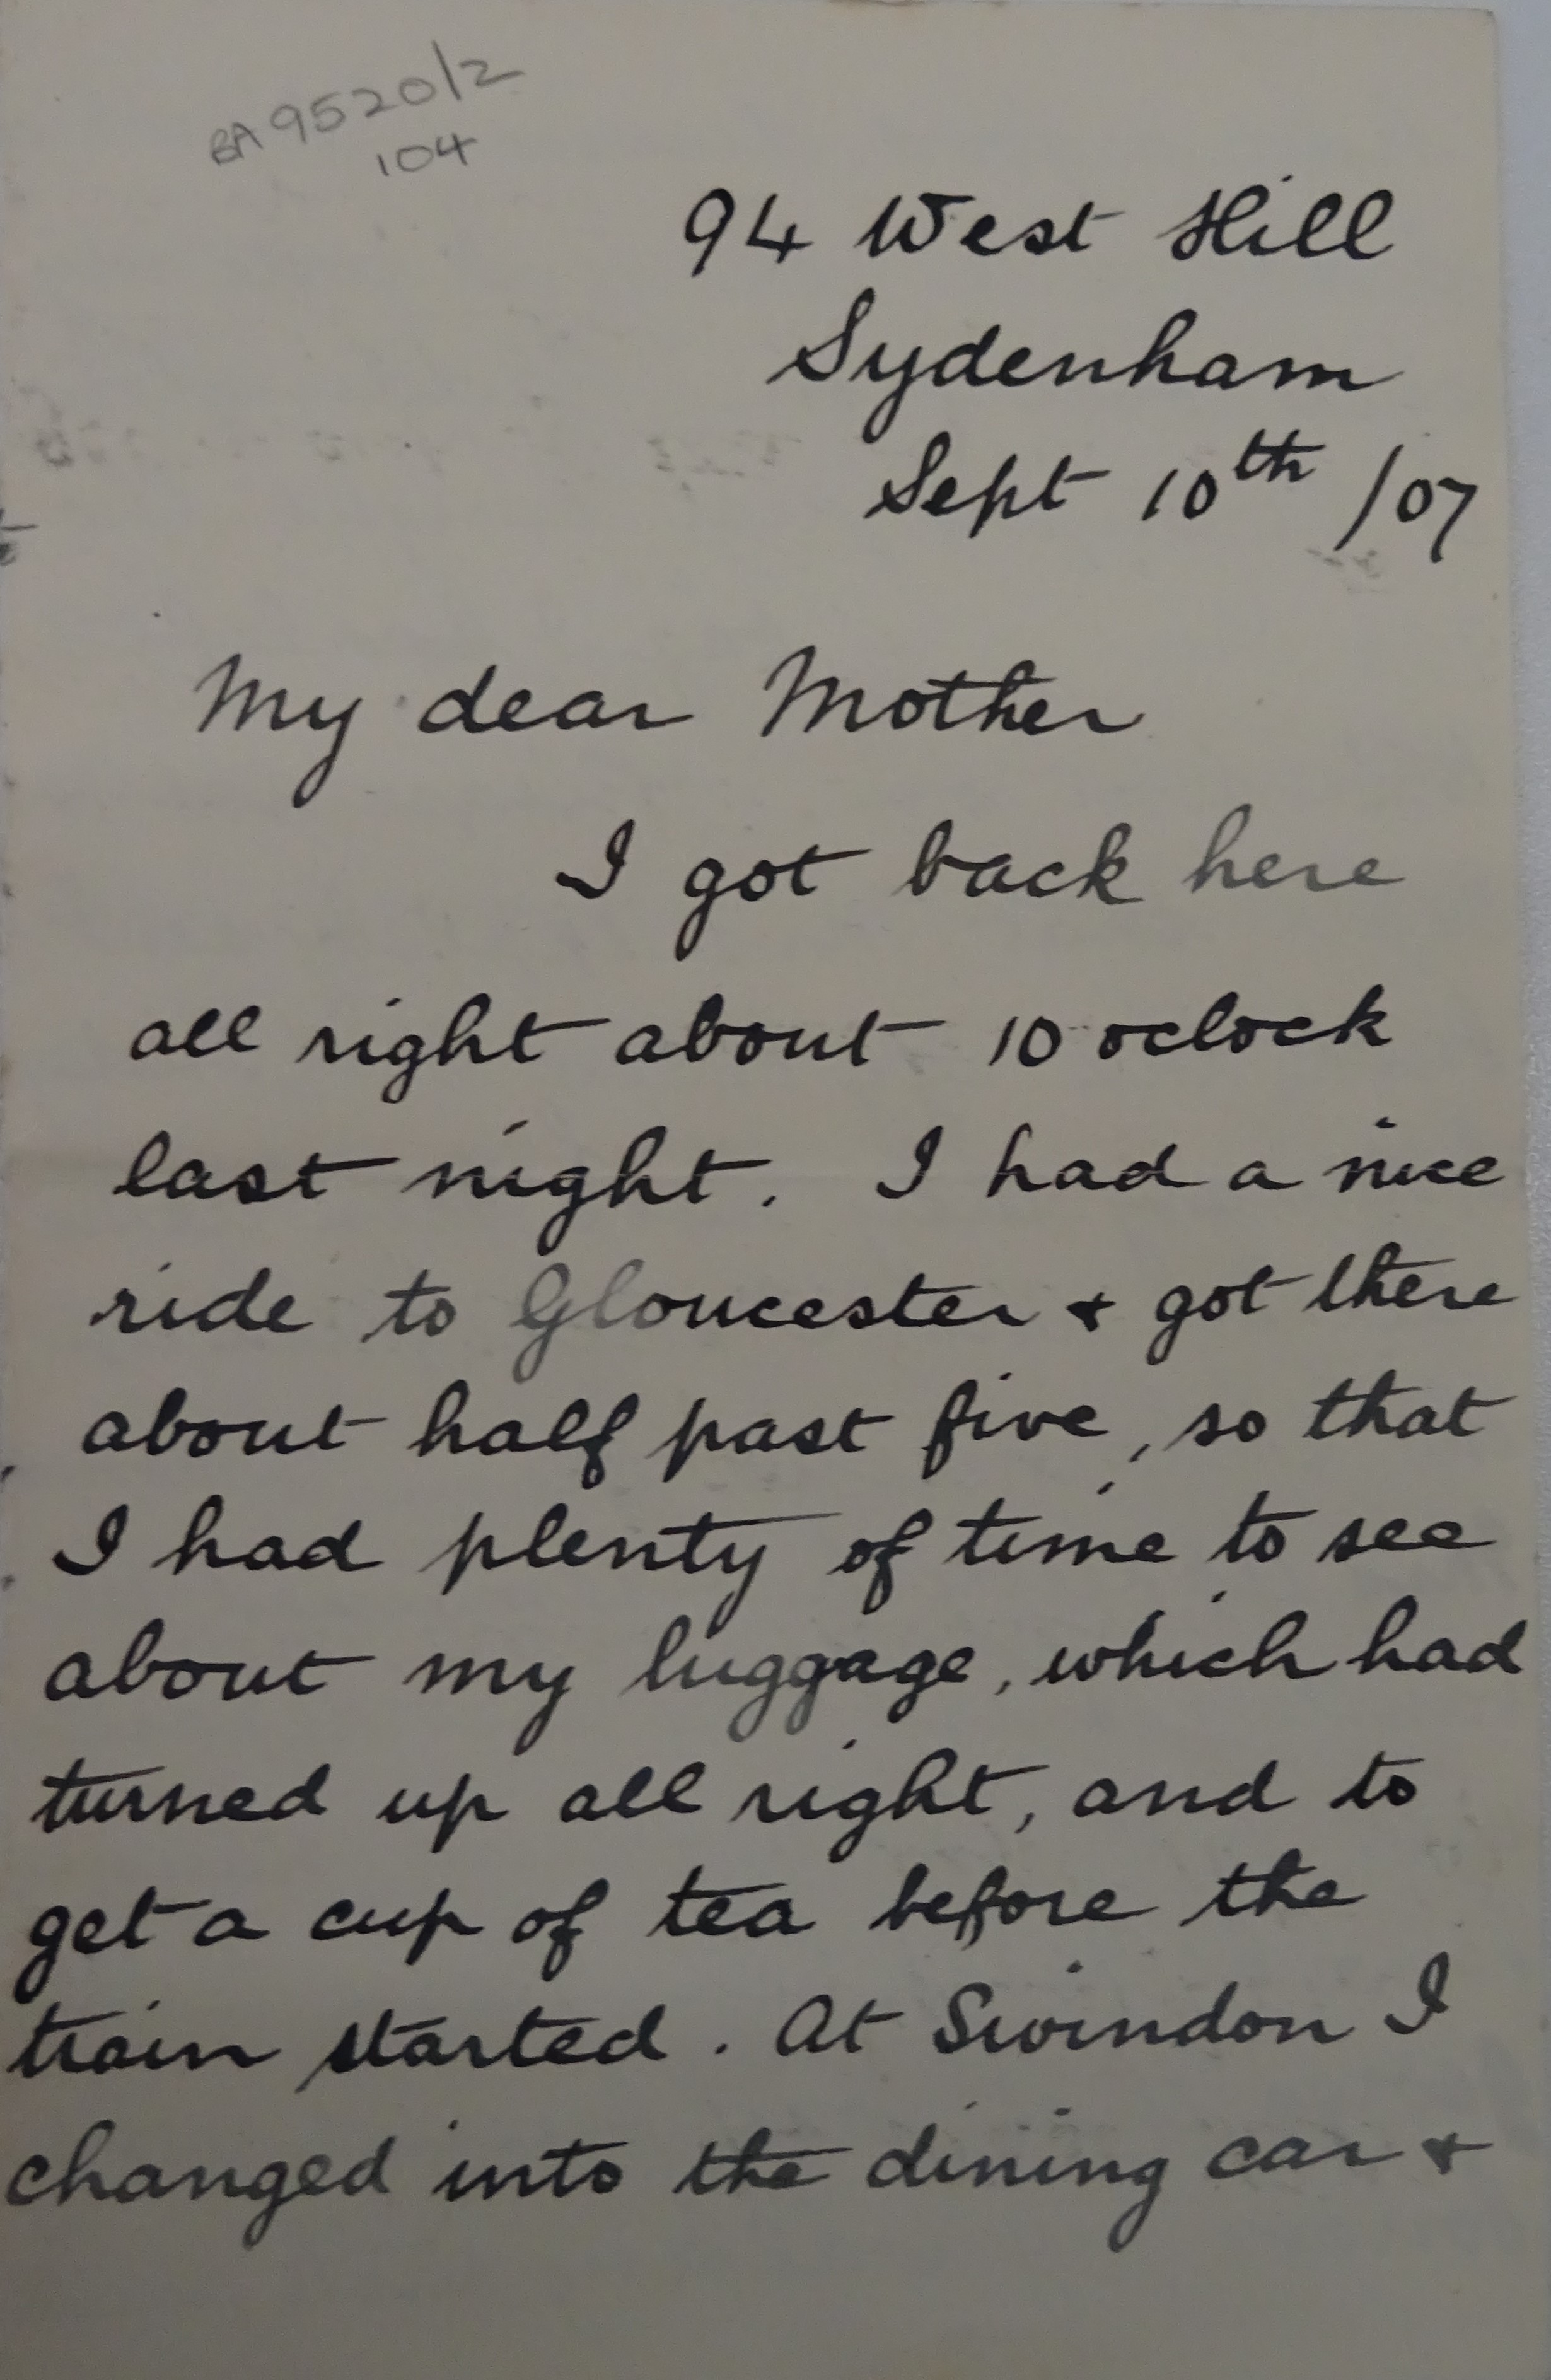 BA 9520/2
104
94 West Hill
Sydenham
Sept 10th /07
My dear Mother
I got back here
all right about 10 oclock
last night. I had a nice
ride to Gloucester & got there
about half past five, so that
I had plenty of time to see
about my luggage, which had
turned up all right, and to
get a cup of tea before the
train started. At Swindon I
changed into the dining car &